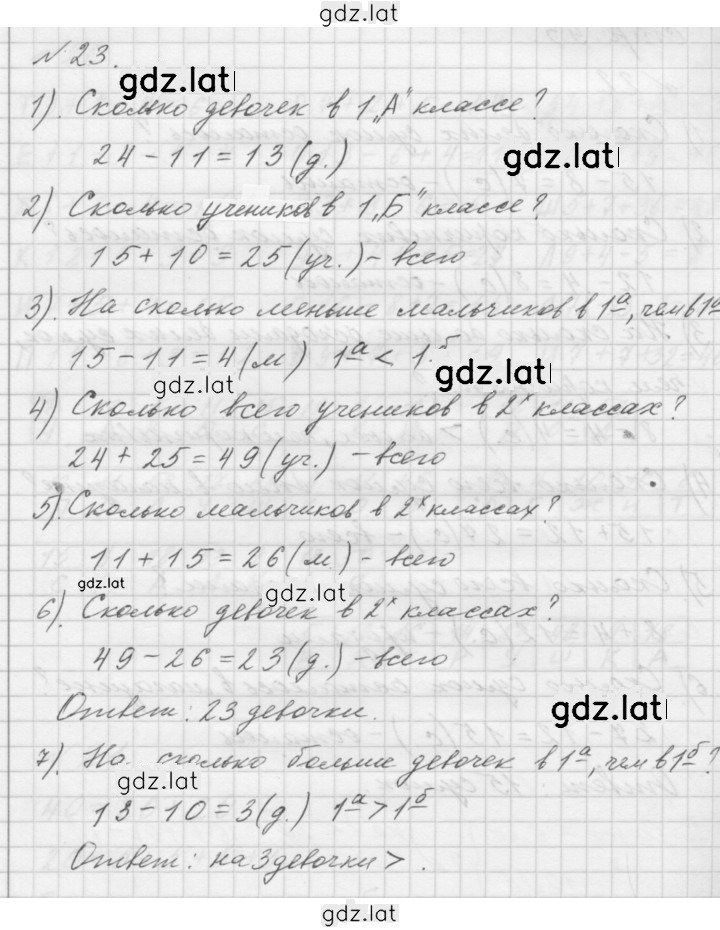 gdz.lat
№ 23.
gdz.lat
1). Сколько девочек в 1 „А" классе?
24 - 11 = 13 (д.)
gdz.lat
2). Сколько учеников в 1 „Б" классе?
15 + 10 = 25 (уч.) - всего
3). На сколько меньше мальчиков в 1а, чем в 1
15 - 11 = 4 (м) 1а < 1б
gdz.lat
gdz.lat
4) Сколько всего учеников в 2х классах?
24 + 25 = 49 (уч.) - всего
5). Сколько мальчиков в 2х классах?
11 + 15 = 26 (м.) - всего
gdz.lat
gdz.lat
6). Сколько девочек в 2х классах?
49 - 26 = 23 (д.) - всего
Ответ: 23 девочки.
gdz.lat
7). На сколько больше девочек в 1а, чем в 1б?
gdz.lat
13 - 10 = 3 (д.) 1а > 1б
Ответ: на 3 девочки > .
gdz.lat